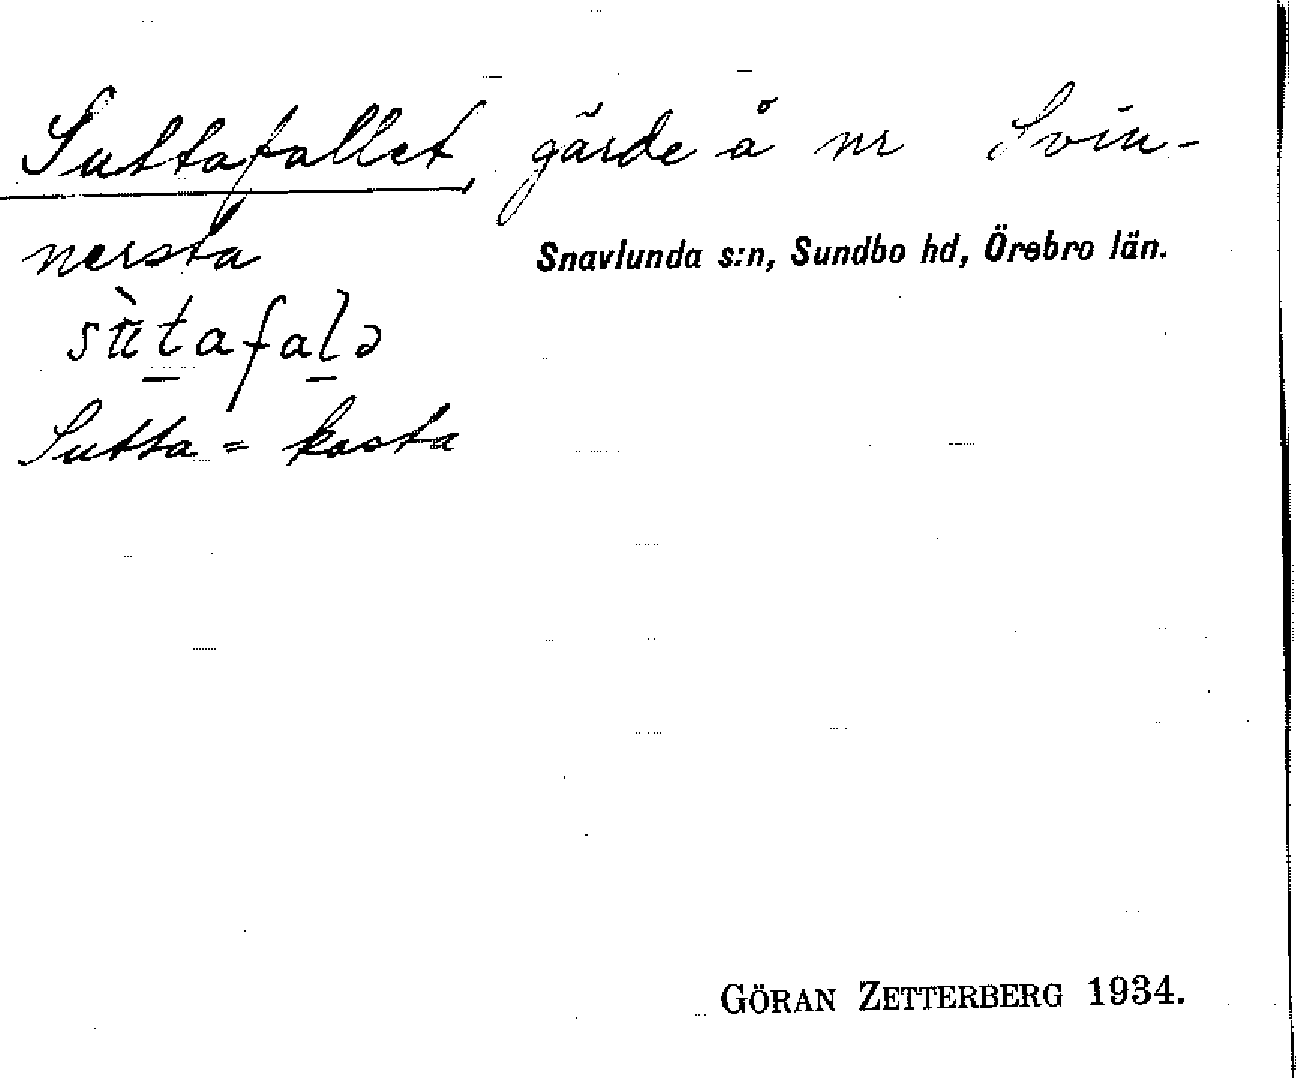 Suttafallet, gärde å nr Svin-
nersta
Snavlunda s:n, Sundbo hd, Örebro län.
sùtafalə
Sutta = kasta
GÖRAN ZETTERBERG 1934.